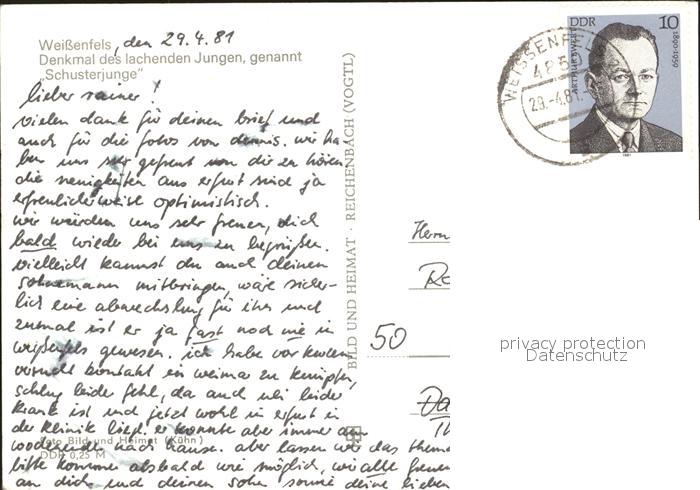 Weißenfels, den 29.4.81
Denkmal des lachenden Jungen, genannt
„Schusterjunge"
lieber rainer!
vielen dank für deinen brief und
auch für die fotos von dennis. wir ha-
ben uns sehr gefreut von dir zu hören
die neuigkeiten aus erfurt sind ja
erfreulicherweise optimistisch.
wir würden uns sehr freuen, dich
bald wieder bei uns zu begrüßen.
vielleicht kannst du auch deinen
sohnemann mitbringen, wäre sicher-
lich eine abwechslung für ihn und
zumal ist er ja fast noch nie in
weißenfels gewesen. ich habe vor kurzem
versucht kontakt in weimar zu knüpfen,
schlug leider fehl, da auch uli leider
krank ist und jetzt wohl in erfurt in
der klinik liegt. er konnte aber immer am
wochenende nach hause. aber lassen wir das thema
bitte komme alsbald wie möglich, wir alle freuen
an dich und deinen sohn sowie deine lieben
Foto Bild und Heimat (Kühn)
DDR 0,25 M
BILD UND HEIMAT · REICHENBACH (VOGTL)
WEISSENFELS
485
29.-4.81.
DDR 10
ARTHUR EWERT 1890-1959
1981
Herrn
50
privacy protection
Datenschutz